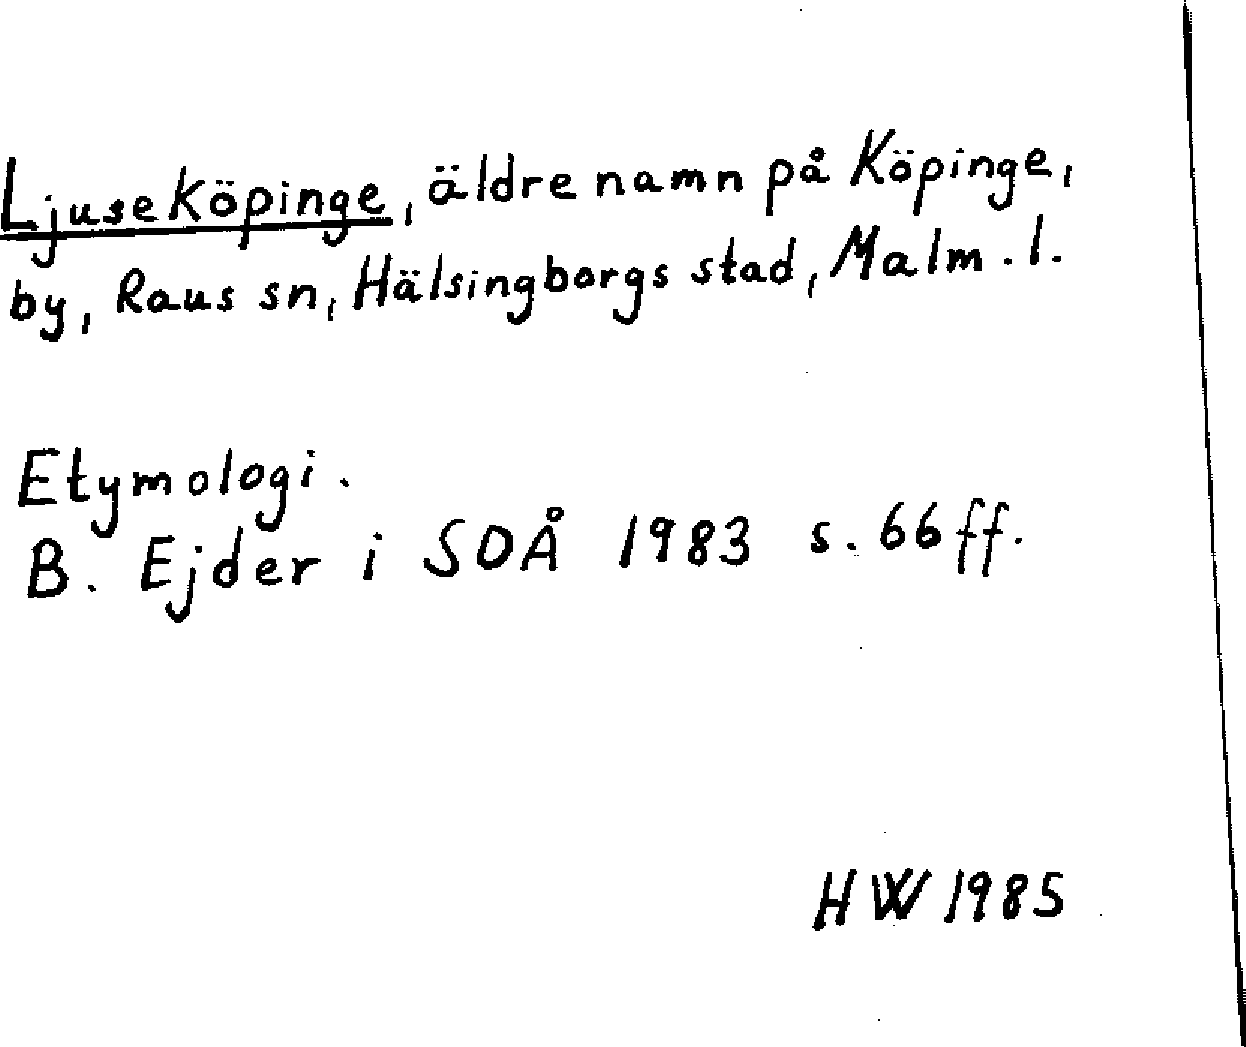 Ljuseköpinge, äldre namn på Köpinge,
by, Raus sn, Hälsingborgs stad, Malm. l.
Etymologi.
B. Ejder i SOÅ 1983 s. 66 ff.
HW 1985